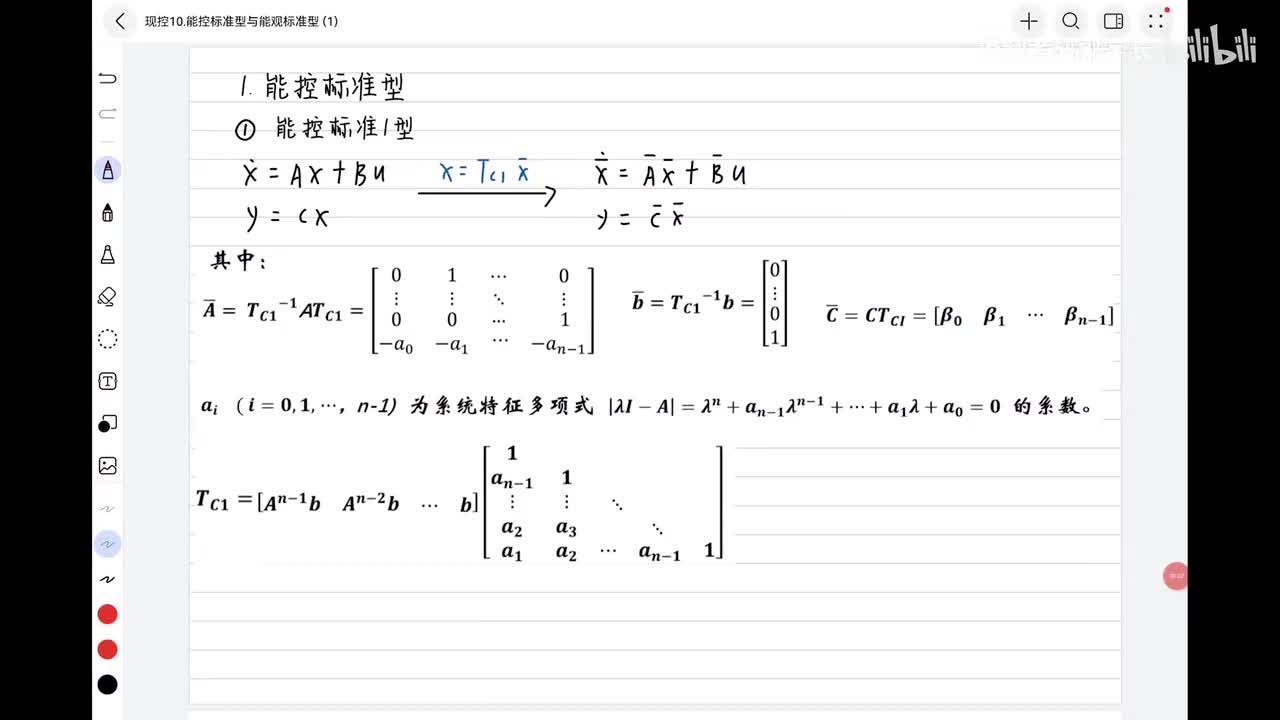 现控10.能控标准型与能观标准型 (1)
bilibili
1. 能控标准型
① 能控标准1型
ẋ = Ax + Bu   x = T_{C1} x̄   x̄̇ = Āx̄ + B̄u
y = Cx   y = C̄x̄
其中:
Ā = T_{C1}^{-1}AT_{C1} = [0 1 ⋯ 0; ⋮ ⋮ ⋱ ⋮; 0 0 ⋯ 1; -a_0 -a_1 ⋯ -a_{n-1}]   b̄ = T_{C1}^{-1}b = [0; ⋮; 0; 1]   C̄ = CT_{CI} = [β_0 β_1 ⋯ β_{n-1}]
a_i (i = 0, 1, ⋯, n-1) 为系统特征多项式 |λI − A| = λ^n + a_{n-1}λ^{n-1} + ⋯ + a_1λ + a_0 = 0 的系数。
T_{C1} = [A^{n-1}b A^{n-2}b ⋯ b] [1; a_{n-1} 1; ⋮ ⋮ ⋱; a_2 a_3 ⋱; a_1 a_2 ⋯ a_{n-1} 1]